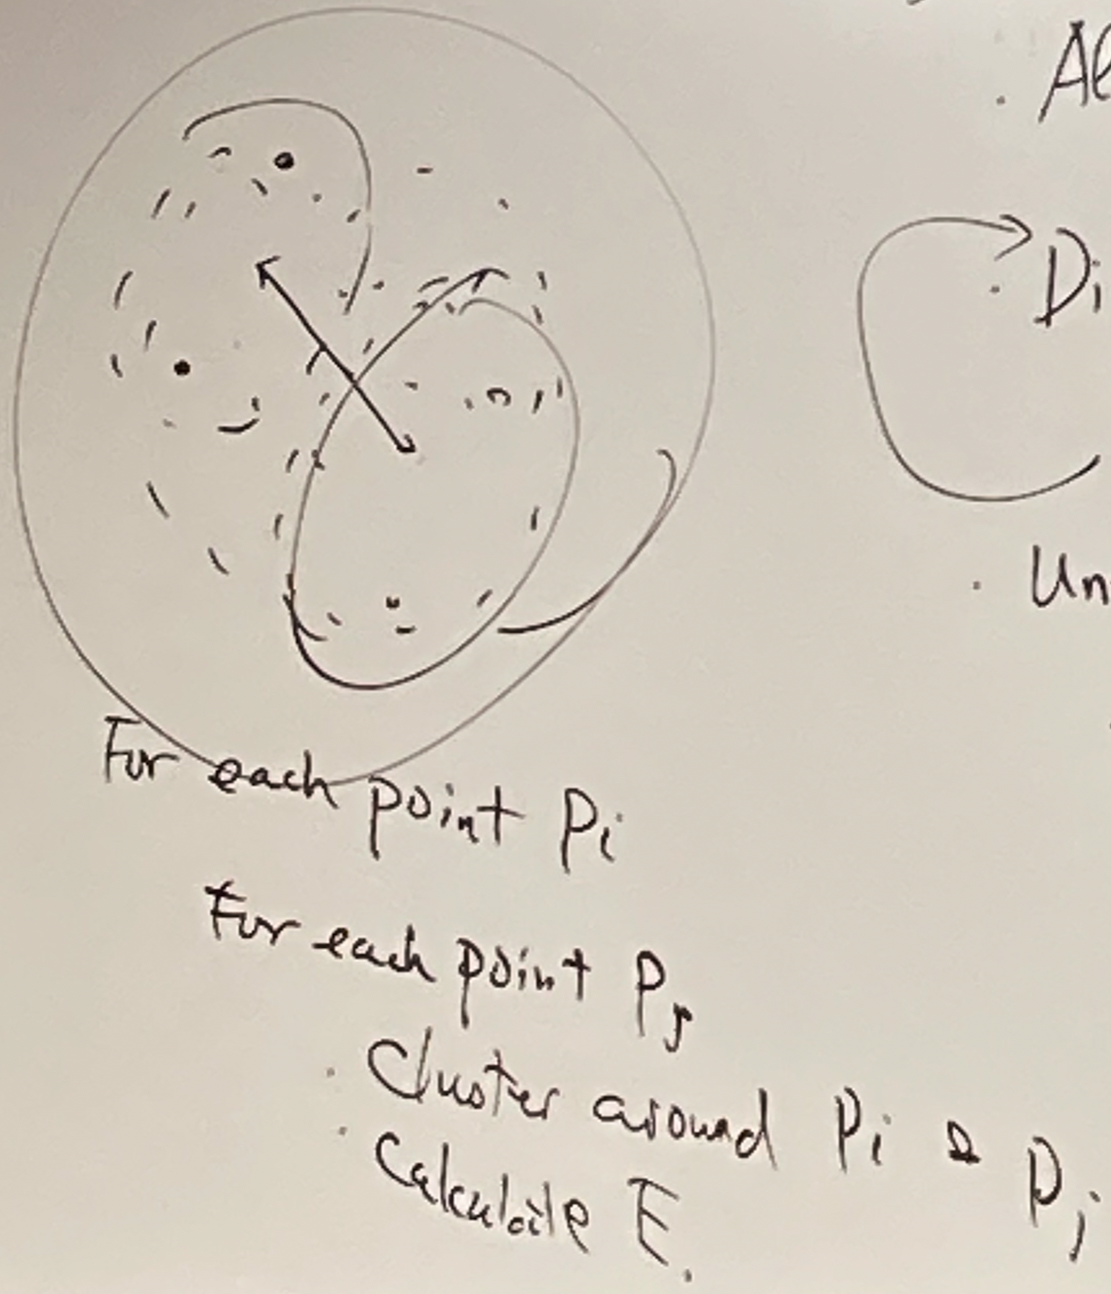 Al
Di
Un
For each point Pi
For each point Pj
. Cluster around Pi & Pj
. Calculate E.